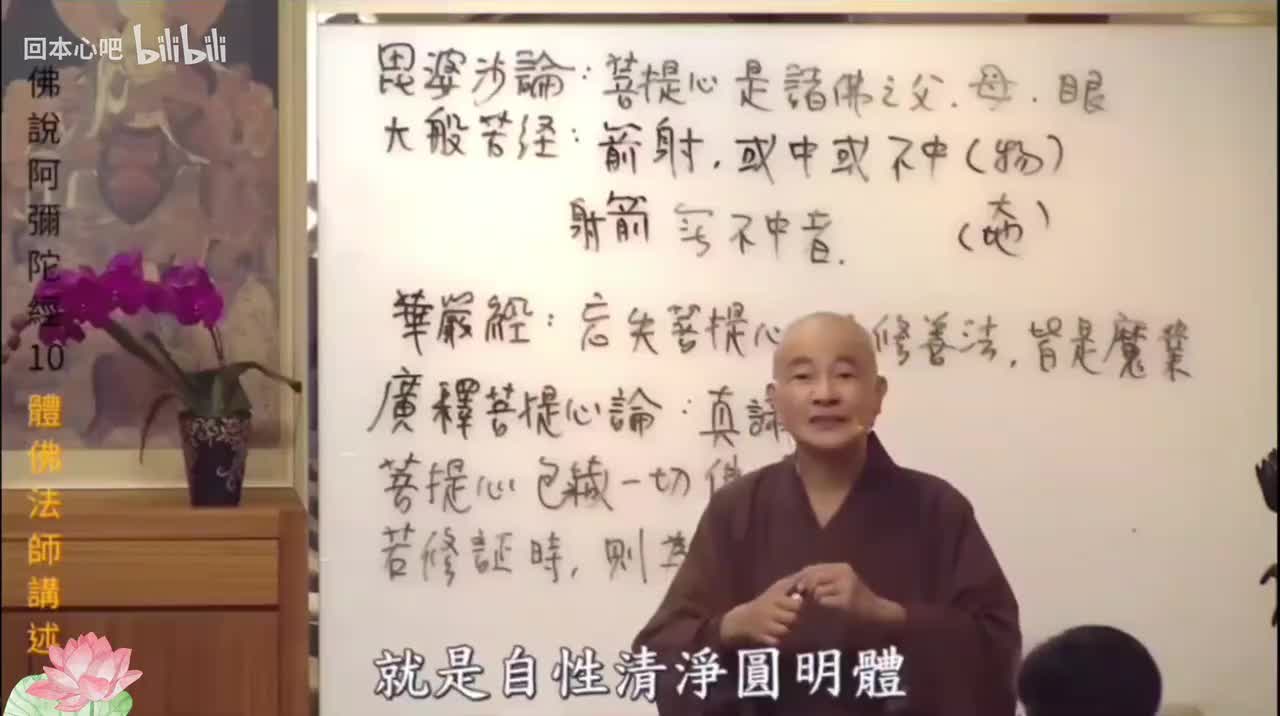 回本心吧 bilibili
佛說阿彌陀經10 體佛法師講述
毘婆沙論：菩提心是諸佛之父．母．眼
大般若経：箭射，或中或不中（物）
射箭 不中者．（大地）
華嚴經：忘失菩提心 修善法，皆是魔業
廣釋菩提心論：真
菩提心包藏一切
若修証時，則
就是自性清淨圓明體